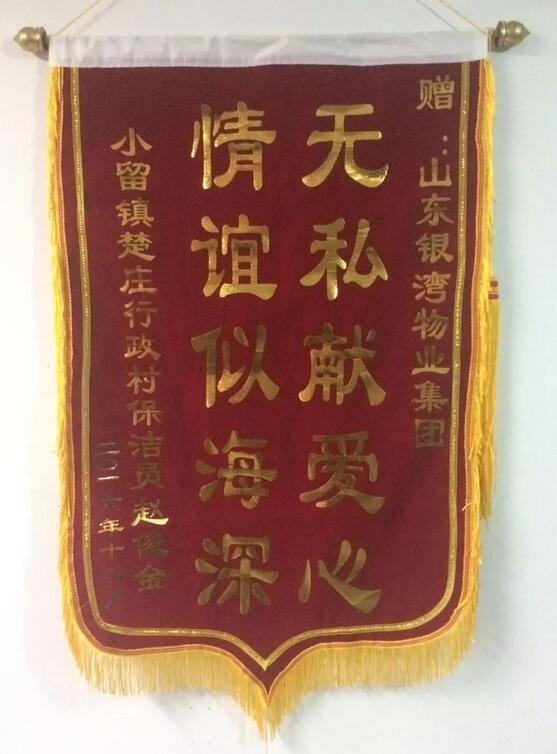 赠：山东银湾物业集团
无私献爱心
情谊似海深
小留镇楚庄行政村保洁员赵俊金
二〇一六年十二月